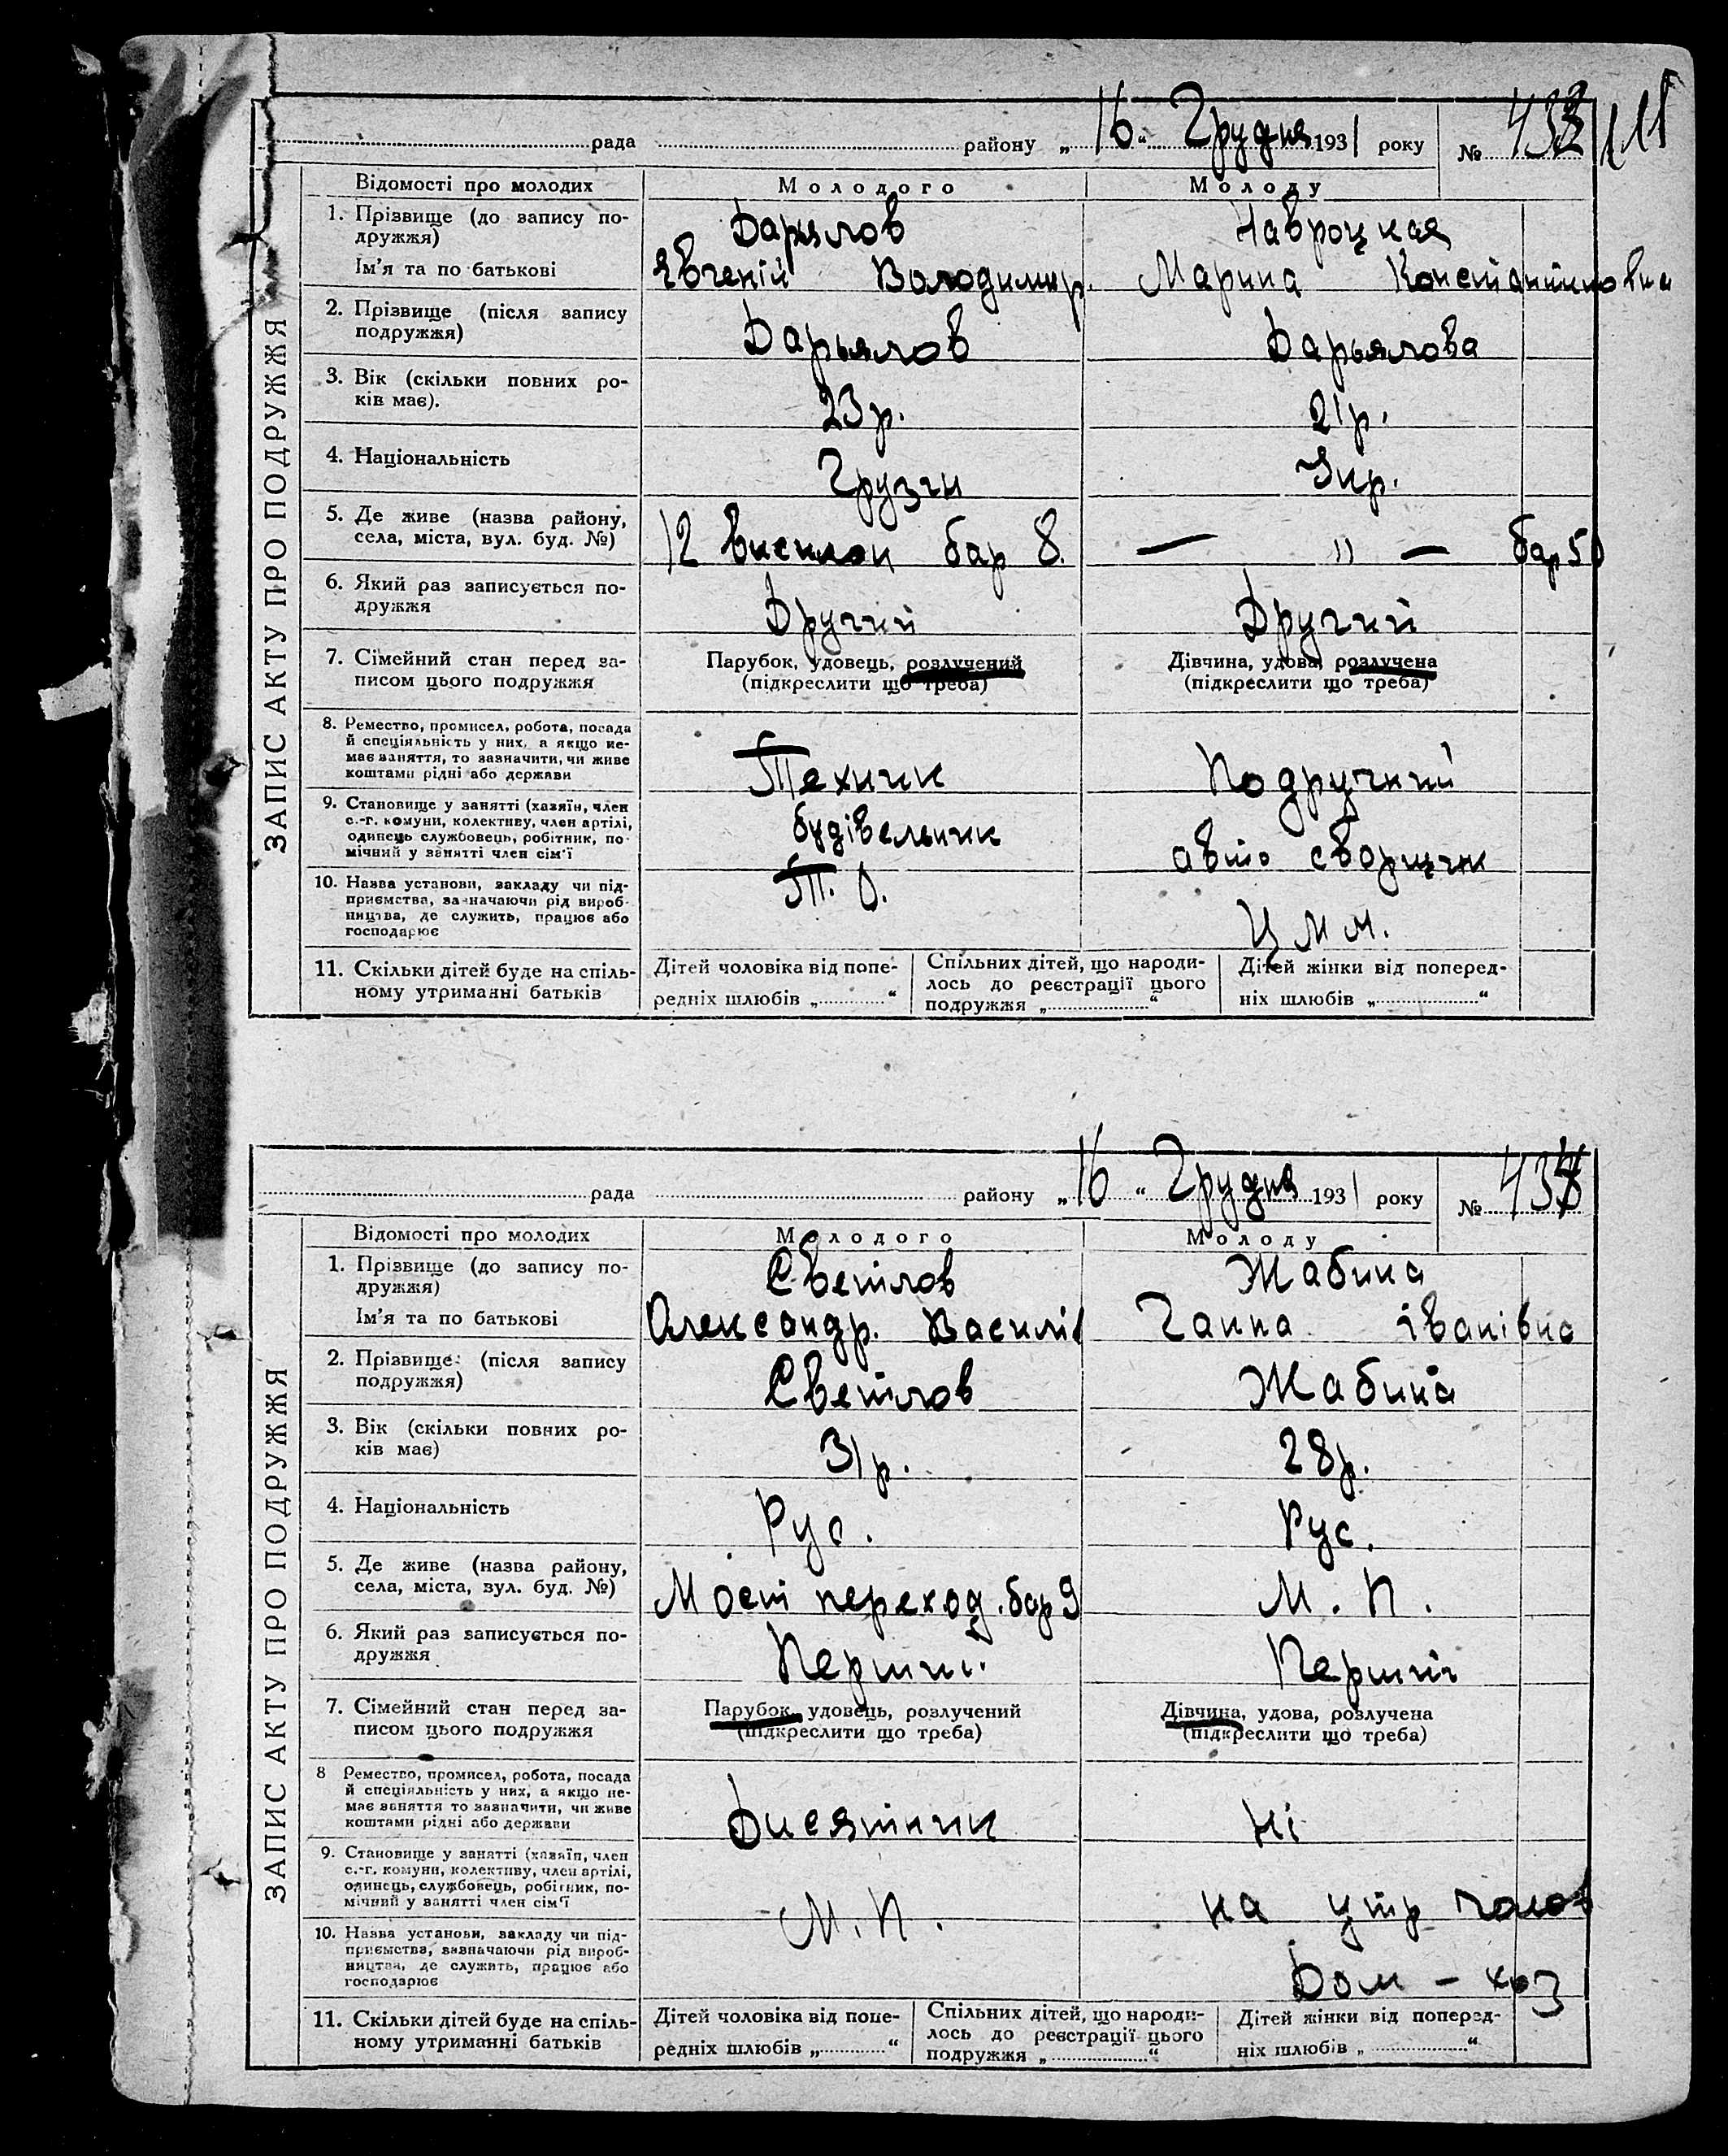 рада району „16“ Грудня 1931 року №
ЗАПИС АКТУ ПРО ПОДРУЖЖЯ
Відомості про молодих
Молодого
Молоду
1. Прізвище (до запису по-
дружжя)
Дарялов
Навроцкая
Ім'я та по батькові
Євгеній Володимир.
Марина Константиновна
2. Прізвище (після запису
подружжя)
Дарьялов
Дарьялова
3. Вік (скільки повних ро-
ків має).
23 р.
21 р.
4. Національність
Грузин
Укр.
5. Де живе (назва району,
села, міста, вул. буд. №)
12 виселок бар 8.
— " — бар 50
6. Який раз записується по-
дружжя
Другий
Другий
7. Сімейний стан перед за-
писом цього подружжя
Парубок, удовець, розлучений
(підкреслити що треба)
Дівчина, удова, розлучена
(підкреслити що треба)
8. Ремество, промисел, робота, посада
й спеціяльність у них, а якщо не-
має заняття, то зазначити, чи живе
коштами рідні або держави
Техник
Подручний
9. Становище у занятті (хазяїн, член
с.-г. комуни, колективу, член артілі,
одинець службовець, робітник, по-
мічний у занятті член сім'ї
будівельник
авто сборщик
10. Назва установи, закладу чи під-
приємства, зазначаючи рід вироб-
ництва, де служить, працює або
господарює
Т. О.
Ц М М.
11. Скільки дітей буде на спіль-
ному утриманні батьків
Дітей чоловіка від попе-
редніх шлюбів „ “
Спільних дітей, що народи-
лось до реєстрації цього
подружжя „ “
Дітей жінки від поперед-
ніх шлюбів „ “
рада району „16“ Грудня 1931 року №
ЗАПИС АКТУ ПРО ПОДРУЖЖЯ
Відомості про молодих
Молодого
Молоду
1. Прізвище (до запису по-
дружжя)
Светлов
Жабина
Ім'я та по батькові
Олександр. Василів
Ганна Іванівна
2. Прізвище (після запису
подружжя)
Светлов
Жабина
3. Вік (скільки повних ро-
ків має)
31 р.
28 р.
4. Національність
Рус.
Рус.
5. Де живе (назва району,
села, міста, вул. буд. №)
Мост переход. бар 9
М. П.
6. Який раз записується по-
дружжя
Перший
Перший
7. Сімейний стан перед за-
писом цього подружжя
Парубок, удовець, розлучений
(підкреслити що треба)
Дівчина, удова, розлучена
(підкреслити що треба)
8 Ремество, промисел, робота, посада
й спеціяльність у них, а якщо не-
має заняття то зазначити, чи живе
коштами рідні або держави
Дисятник
Ні
9. Становище у занятті (хазяїн, член
с.-г. комуни, колективу, член артілі,
одинець, службовець, робітник, по-
мічний у занятті член сім'ї
М. П.
на утр чолов
10. Назва установи, закладу чи під-
приємства, зазначаючи рід вироб-
ництва, де служить, працює або
господарює
Дом - хоз
11. Скільки дітей буде на спіль-
ному утриманні батьків
Дітей чоловіка від попе-
редніх шлюбів „ “
Спільних дітей, що народи-
лось до реєстрації цього
подружжя „ “
Дітей жінки від поперед-
ніх шлюбів „ “